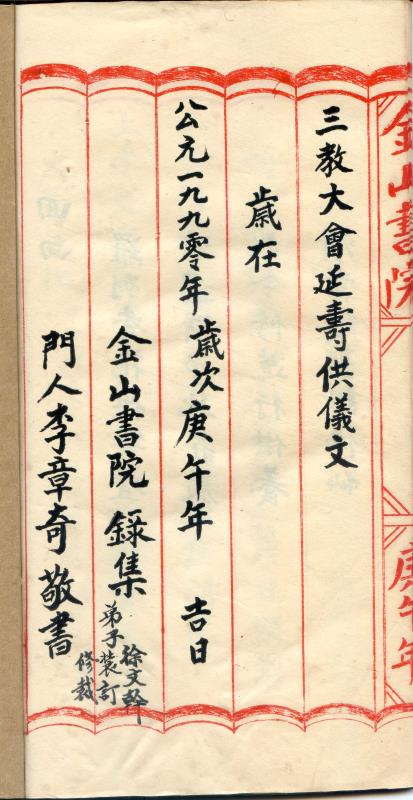 金山書院
庚午年
三教大會延壽供儀文
歲在
公元一九九零年歲次庚午年 吉日
金山書院 錄集
徐文幹
弟子裝訂
修裁
門人李章奇敬書